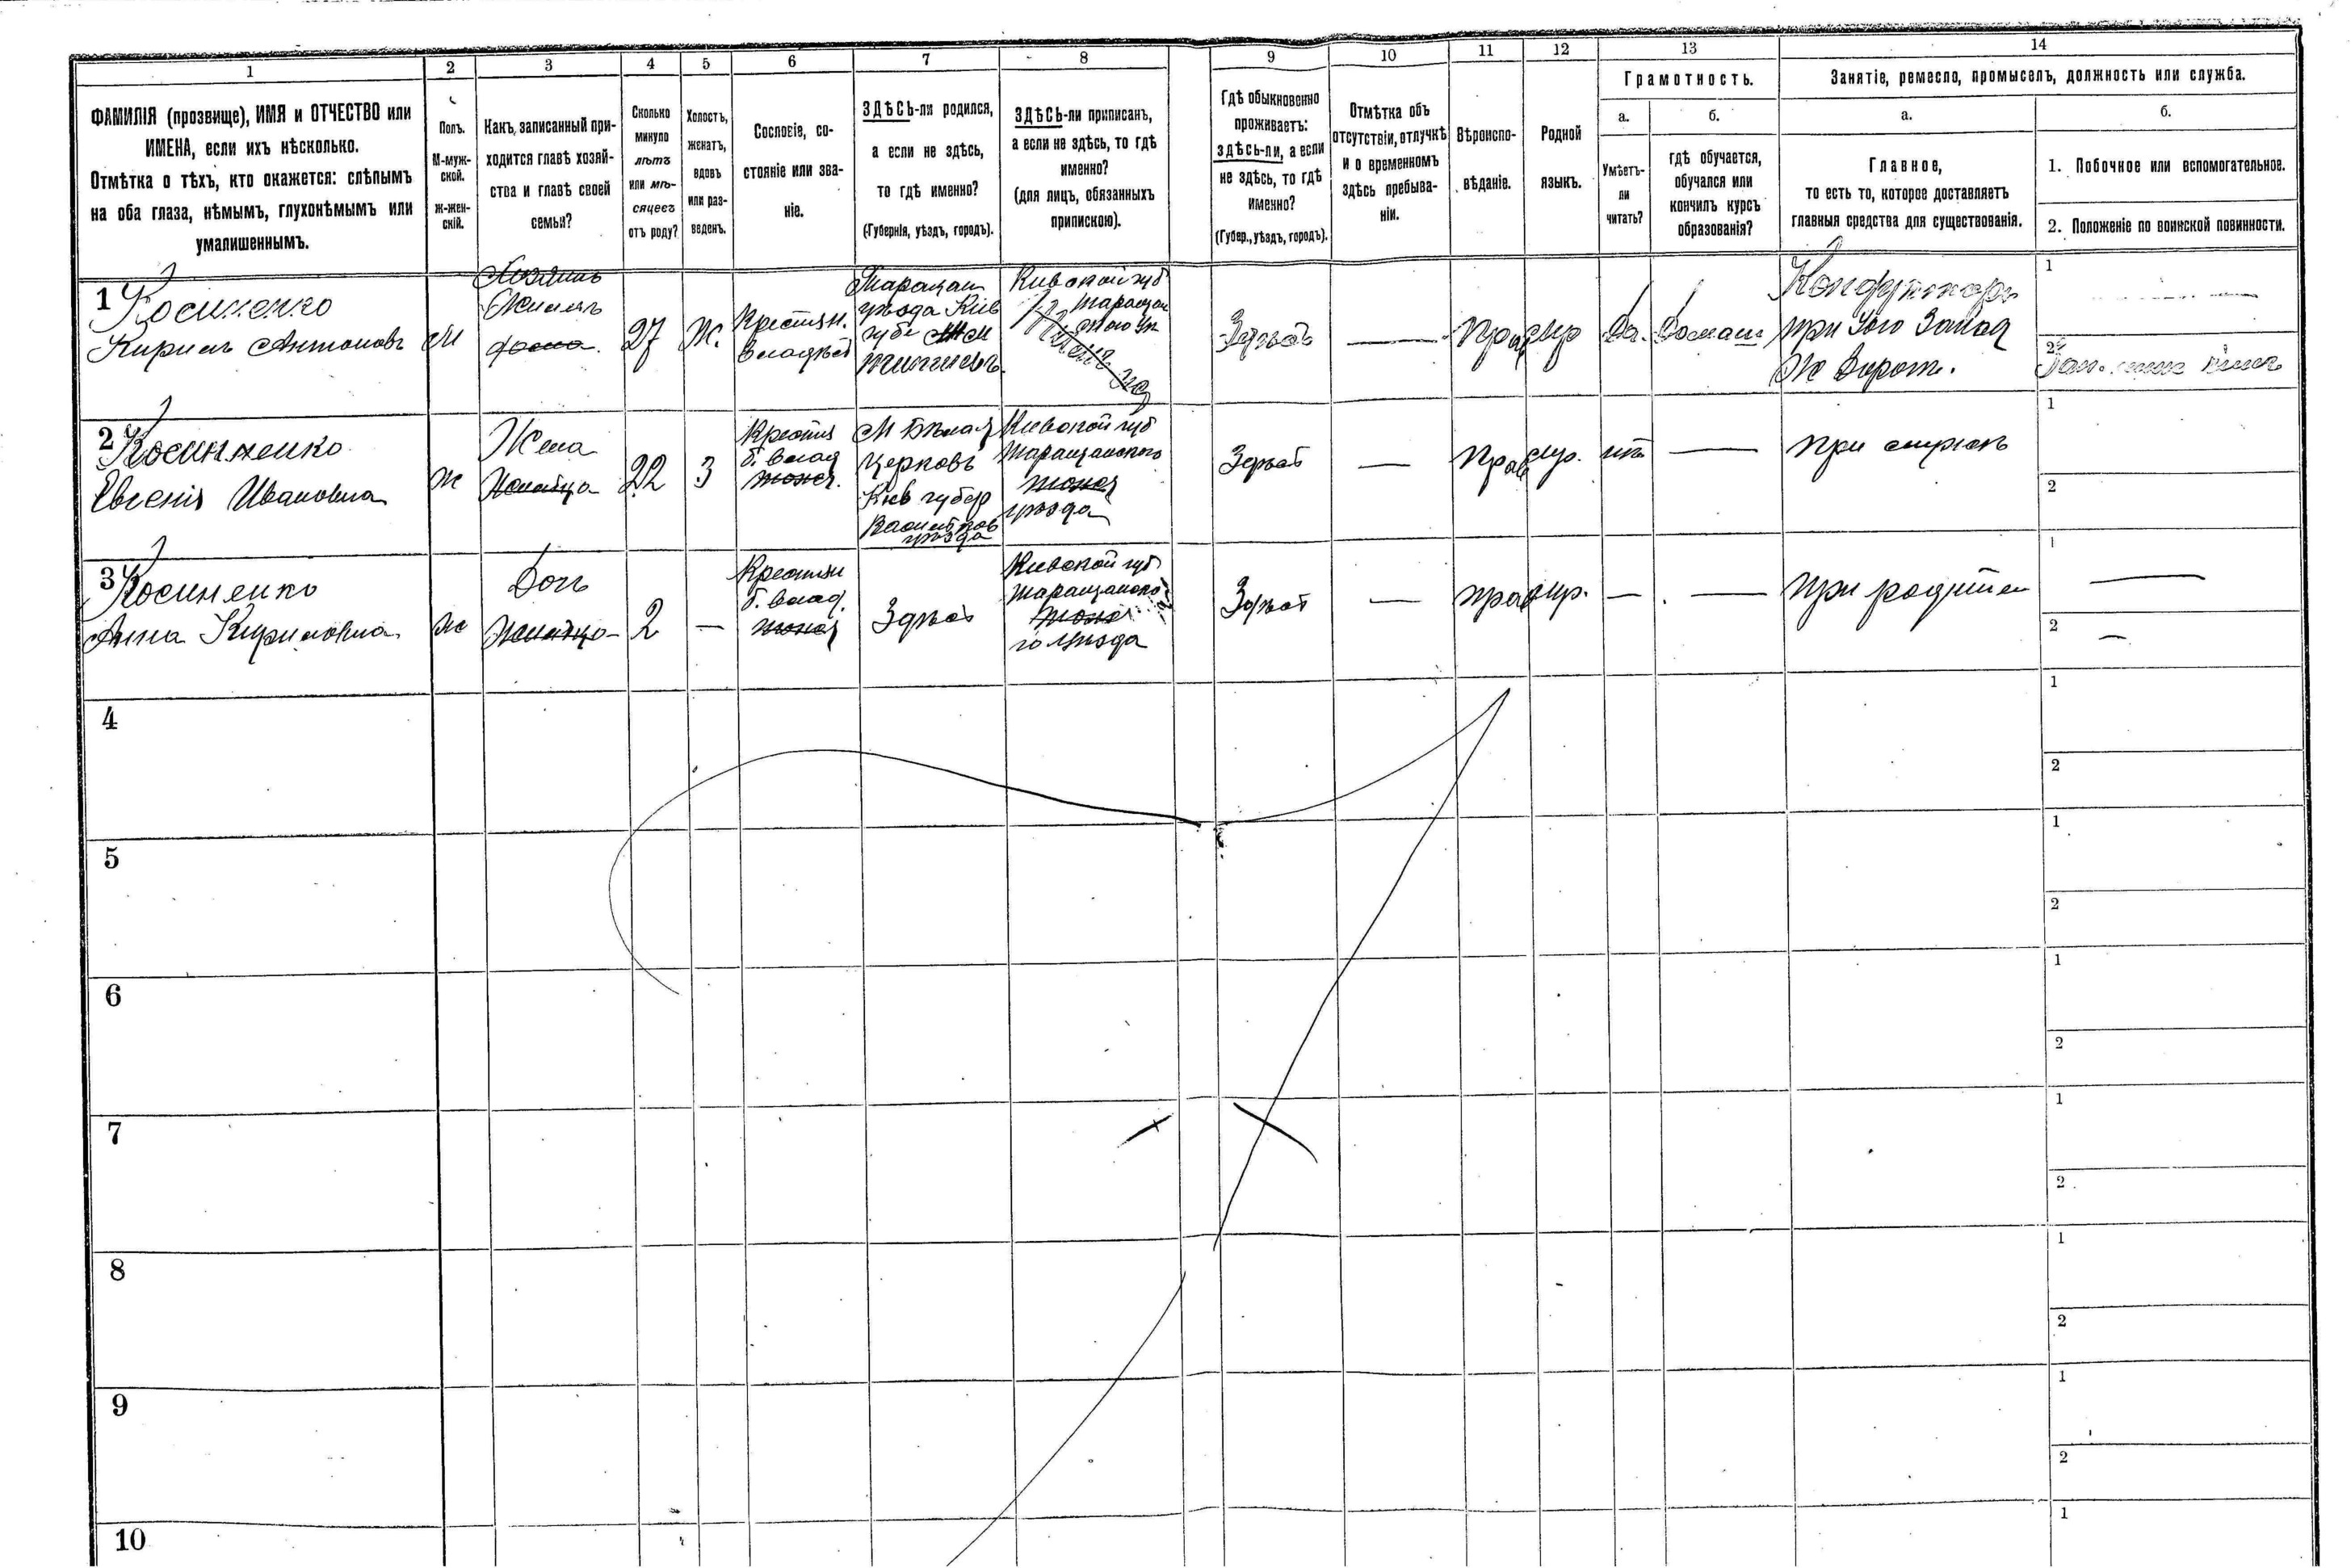 1
2
3
4
5
6
7
8
9
10
11
12
13
14
ФАМИЛІЯ (прозвище), ИМЯ и ОТЧЕСТВО или
ИМЕНА, если ихъ нѣсколько.
Отмѣтка о тѣхъ, кто окажется: слѣпымъ
на оба глаза, нѣмымъ, глухонѣмымъ или
умалишеннымъ.
Полъ.
М-муж-
ской.
ж-жен-
скій.
Какъ, записанный при-
ходится главѣ хозяй-
ства и главѣ своей
семьи?
Сколько
минуло
лѣтъ
или мѣ-
сяцевъ
отъ роду?
Холостъ,
женатъ,
вдовъ
или раз-
веденъ.
Сословіе, со-
стояніе или зва-
ніе.
ЗДѢСЬ-ли родился,
а если не здѣсь,
то гдѣ именно?
(Губернія, уѣздъ, городъ).
ЗДѢСЬ-ли приписанъ,
а если не здѣсь, то гдѣ
именно?
(для лицъ, обязанныхъ
припискою).
Гдѣ обыкновенно
проживаетъ:
здѣсь-ли, а если
не здѣсь, то гдѣ
именно?
(Губер., уѣздъ, городъ).
Отмѣтка объ
отсутствіи, отлучкѣ
и о временномъ
здѣсь пребыва-
ніи.
Вѣроиспо-
вѣданіе.
Родной
языкъ.
Грамотность.
а.
Умѣетъ-
ли
читать?
б.
гдѣ обучается,
обучался или
кончилъ курсъ
образованія?
Занятіе, ремесло, промыселъ, должность или служба.
а.
Главное,
то есть то, которое доставляетъ
главныя средства для существованія.
б.
1. Побочное или вспомогательное.
2. Положеніе по воинской повинности.
1
Косиненко
Кирилъ Антоновъ
М
Хозяинъ
27
Ж.
Крестян.
Таращан
уѣзда Кіев
губе
Кивской губ
Таращан
Здѣсь
—
Прав
Да.
Домаш
Кондукторъ
при Юго Запад
Ж Дорог.
1
2
2
Косиненко
Евгенія Ивановна
ж
Жена
22
З
Крестня
б. влад
М Бѣлая
Церковь
Кив губер
уѣзда
Кивской губ
Таращанского
уѣзда
Здѣсь
—
Прав
нѣ
—
при
1
2
3
Косиненко
Анна Кириловна
ж
Дочь
2
—
Крестян
б. влад.
Здѣсь
Кивской губ
Таращанско
го уѣзда
Здѣсь
—
прав
—
—
при родител
1
—
2
—
4
1
2
5
1
2
6
1
2
7
1
2
8
1
2
9
1
2
10
1